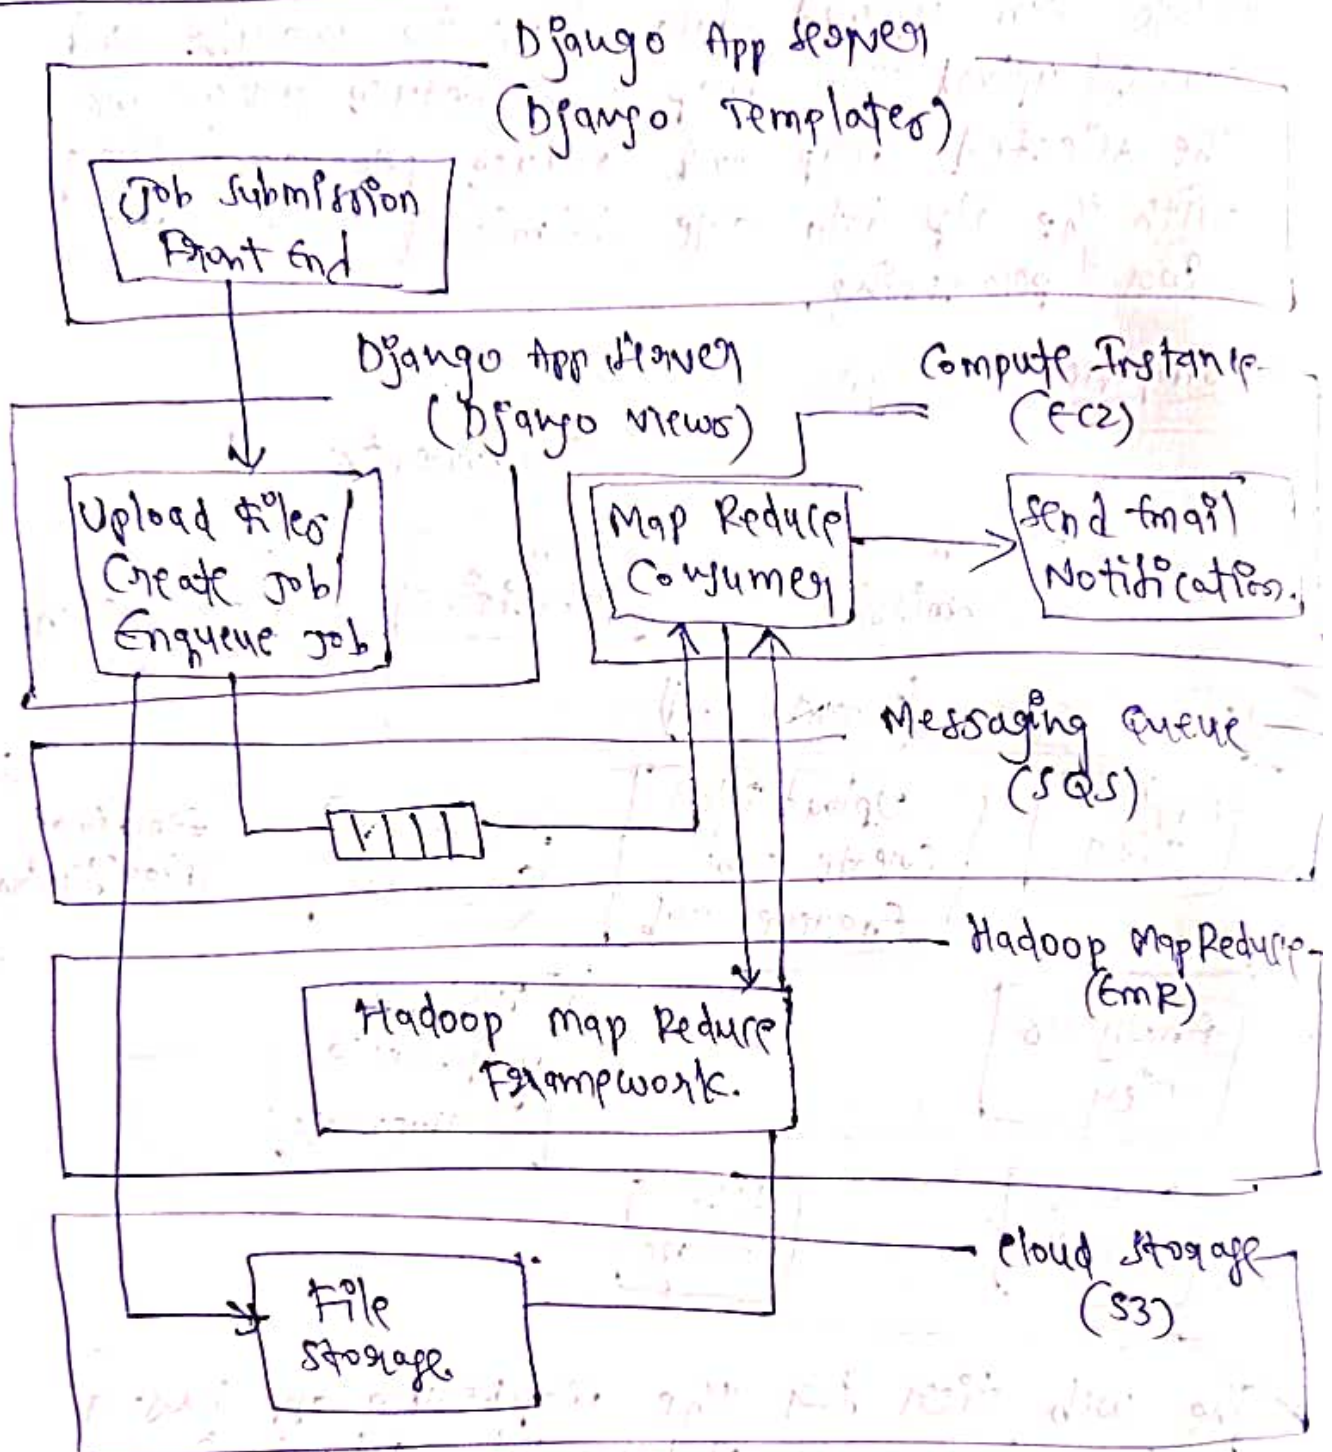 Django App Server
(Django Templates)
Job Submission
Front End
Django App Server
(Django Views)
Compute Instance
(EC2)
Upload Files/
Create Job/
Enqueue Job
Map Reduce
Consumer
Send Email
Notification.
Messaging Queue
(SQS)
Hadoop MapReduce
(EMR)
Hadoop Map Reduce
Framework.
Cloud Storage
(S3)
File
Storage